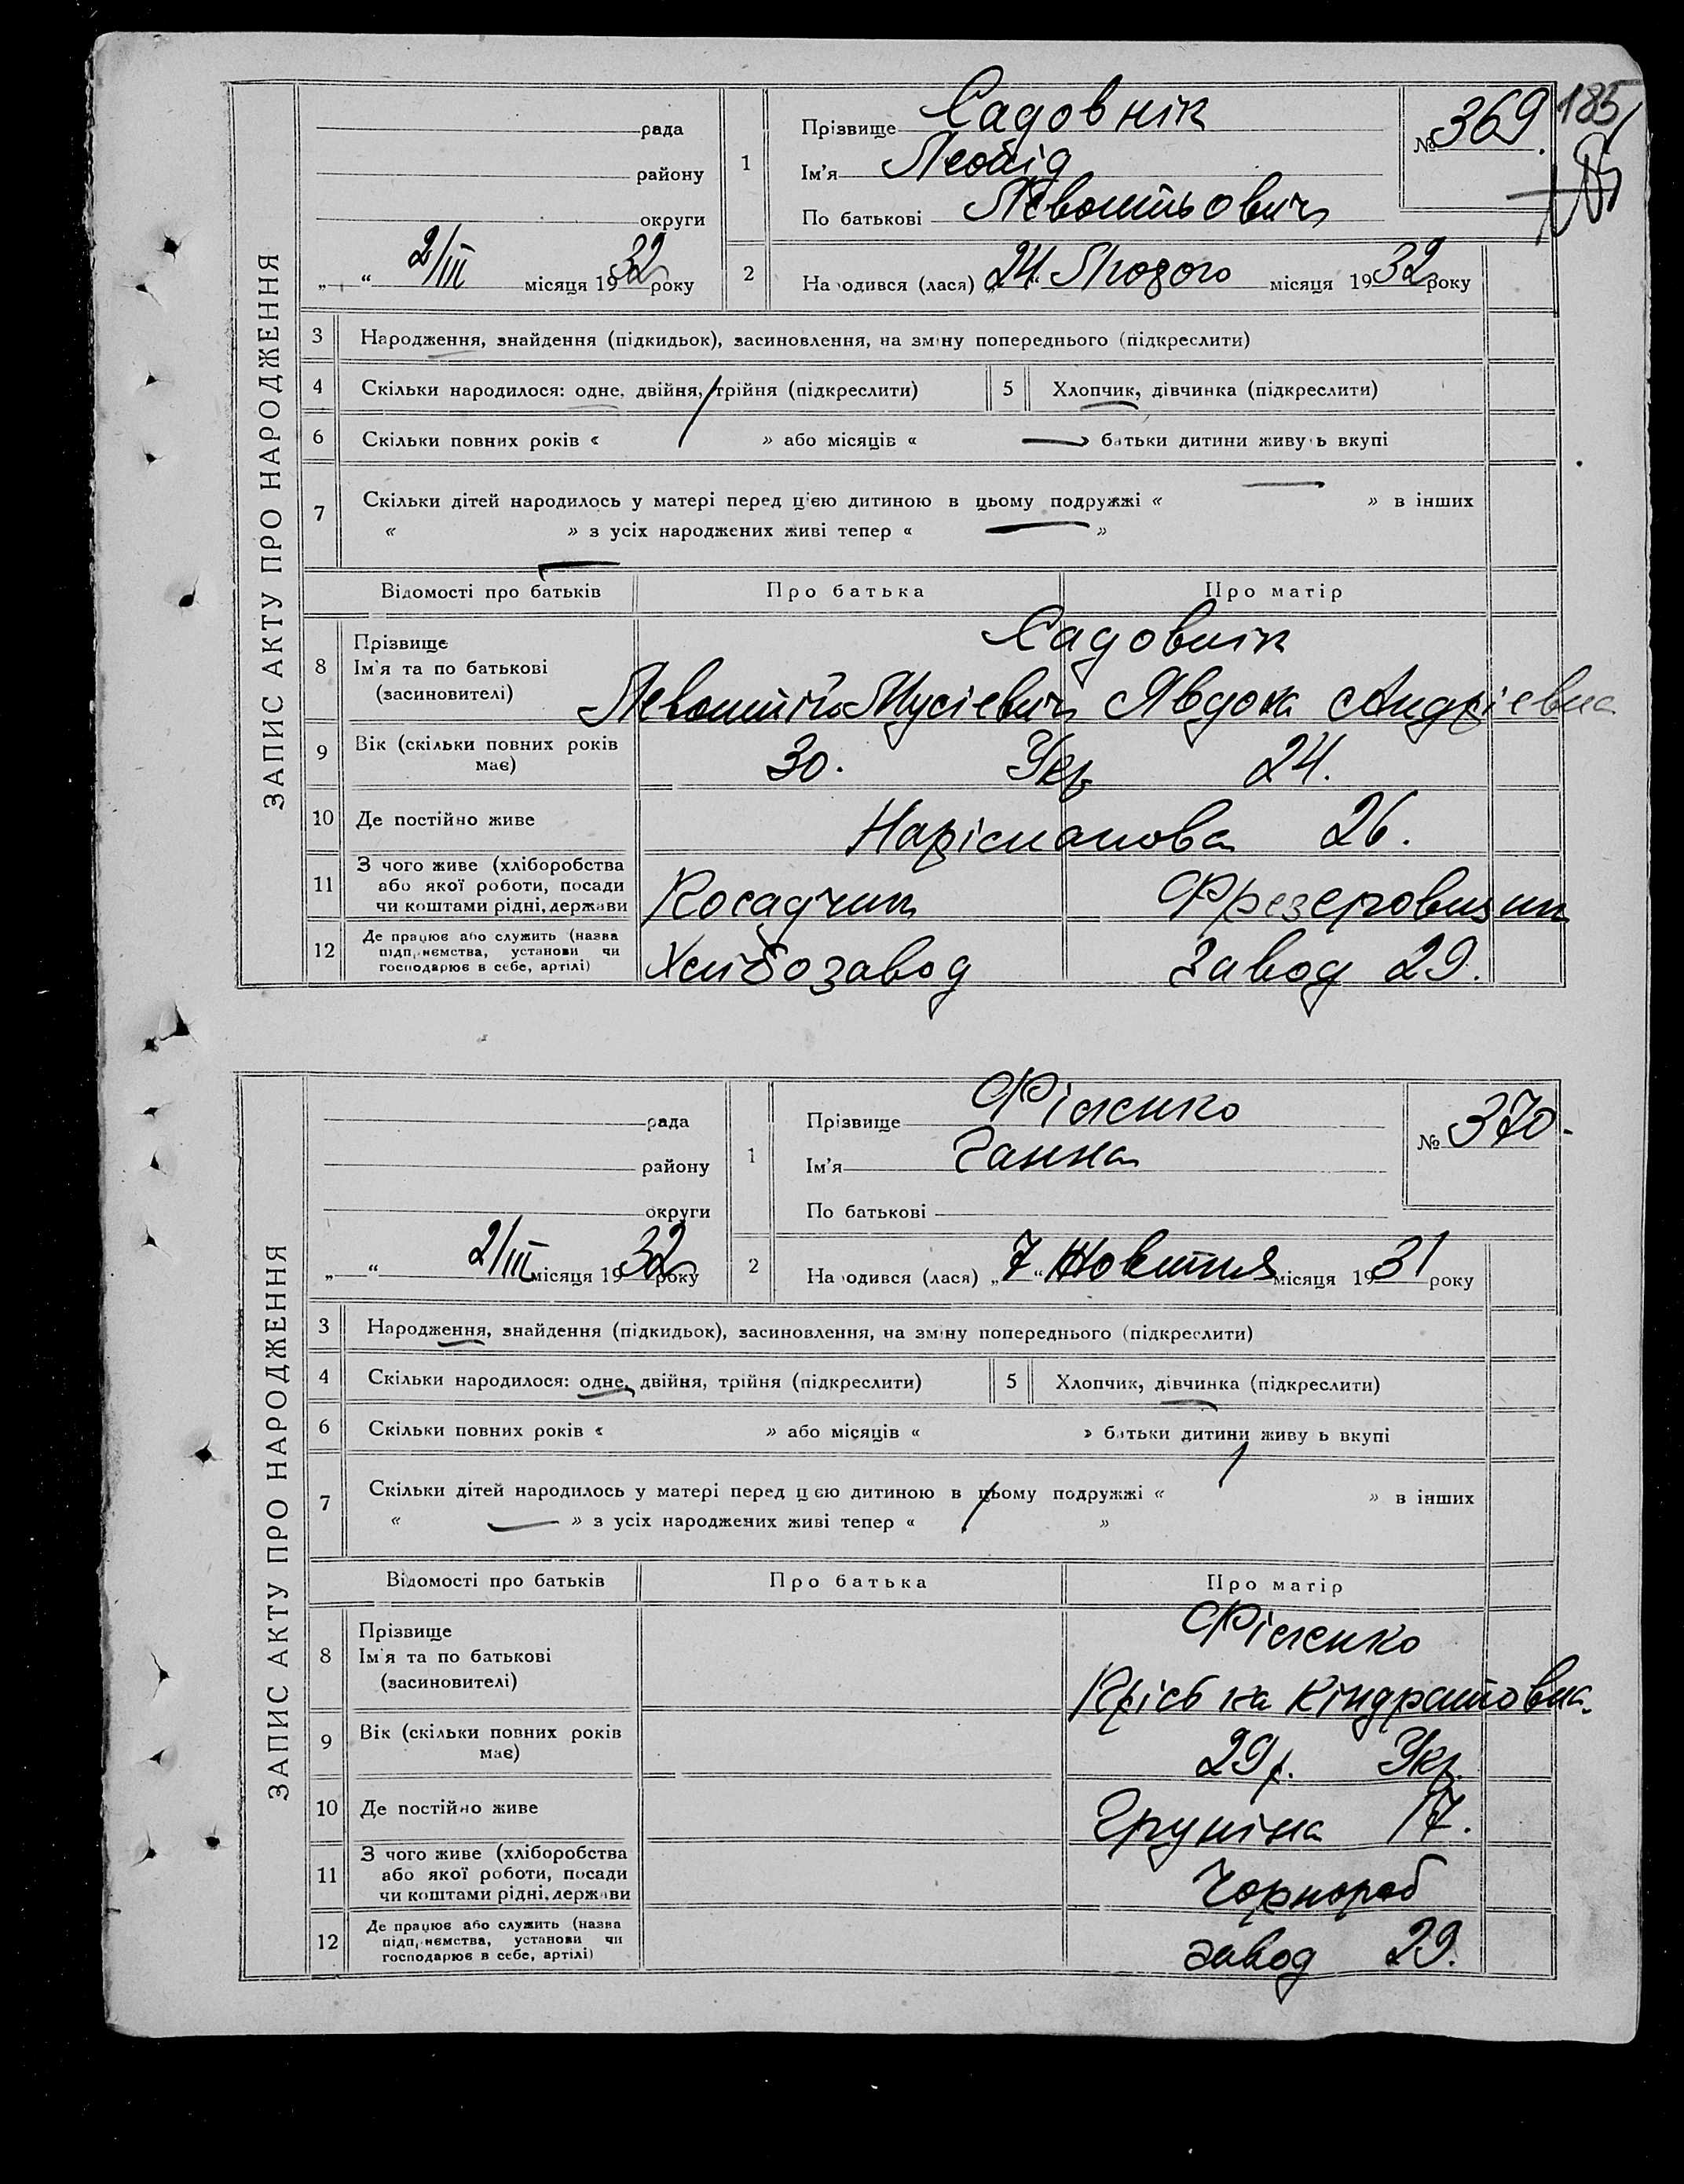 ЗАПИС АКТУ ПРО НАРОДЖЕННЯ
185
рада
району
округи
„ “ 2/III місяця 1932 року
1 Прізвище Садовнік
Ім'я Леонід
По батькові Левонтьович
№ 369.
2 На одився (лася) „24“ Лютого місяця 1932 року
3 Народження, знайдення (підкидьок), засиновлення, на зміну попереднього (підкреслити)
4 Скільки народилося: одне, двійня, трійня (підкреслити) 5 Хлопчик, дівчинка (підкреслити)
6 Скільки повних років « » або місяців « — » батьки дитини живуть вкупі
7 Скільки дітей народилось у матері перед цією дитиною в цьому подружжі « — » в інших
« » з усіх народжених живі тепер « — »
Відомості про батьків Про батька Про матір
8 Прізвище Садовнік
Ім'я та по батькові
(засиновителі) Левонтій Мусієвич Явдоха Андрієвна
9 Вік (скільки повних років має) 30. Укр 24.
10 Де постійно живе Наріманова 26.
11 З чого живе (хліборобства
або якої роботи, посади
чи коштами рідні, держави Фрезеровщик
12 Де працює або служить (назва
підприємства, установи чи
господарює в себе, артілі) Хлібозавод Завод 29.
ЗАПИС АКТУ ПРО НАРОДЖЕННЯ
рада
району
округи
„ “ 2/III місяця 1932 року
1 Прізвище Філенко
Ім'я Ганна
По батькові
№ 370.
2 На одився (лася) „7“ Жовтня місяця 1931 року
3 Народження, знайдення (підкидьок), засиновлення, на зміну попереднього (підкреслити)
4 Скільки народилося: одне, двійня, трійня (підкреслити) 5 Хлопчик, дівчинка (підкреслити)
6 Скільки повних років « » або місяців « » батьки дитини живу ь вкупі
7 Скільки дітей народилось у матері перед ц єю дитиною в цьому подружжі « » в інших
« — » з усіх народжених живі тепер « »
Відомості про батьків Про батька Про матір
8 Прізвище Філенко
Ім'я та по батькові
(засиновителі) Кіндратовна
9 Вік (скільки повних років має) 29 р. Укр.
10 Де постійно живе Груніна 17.
11 З чого живе (хліборобства
або якої роботи, посади
чи коштами рідні, держави Чорнороб
12 Де працює або служить (назва
підприємства, установи чи
господарює в себе, артілі) завод 29.